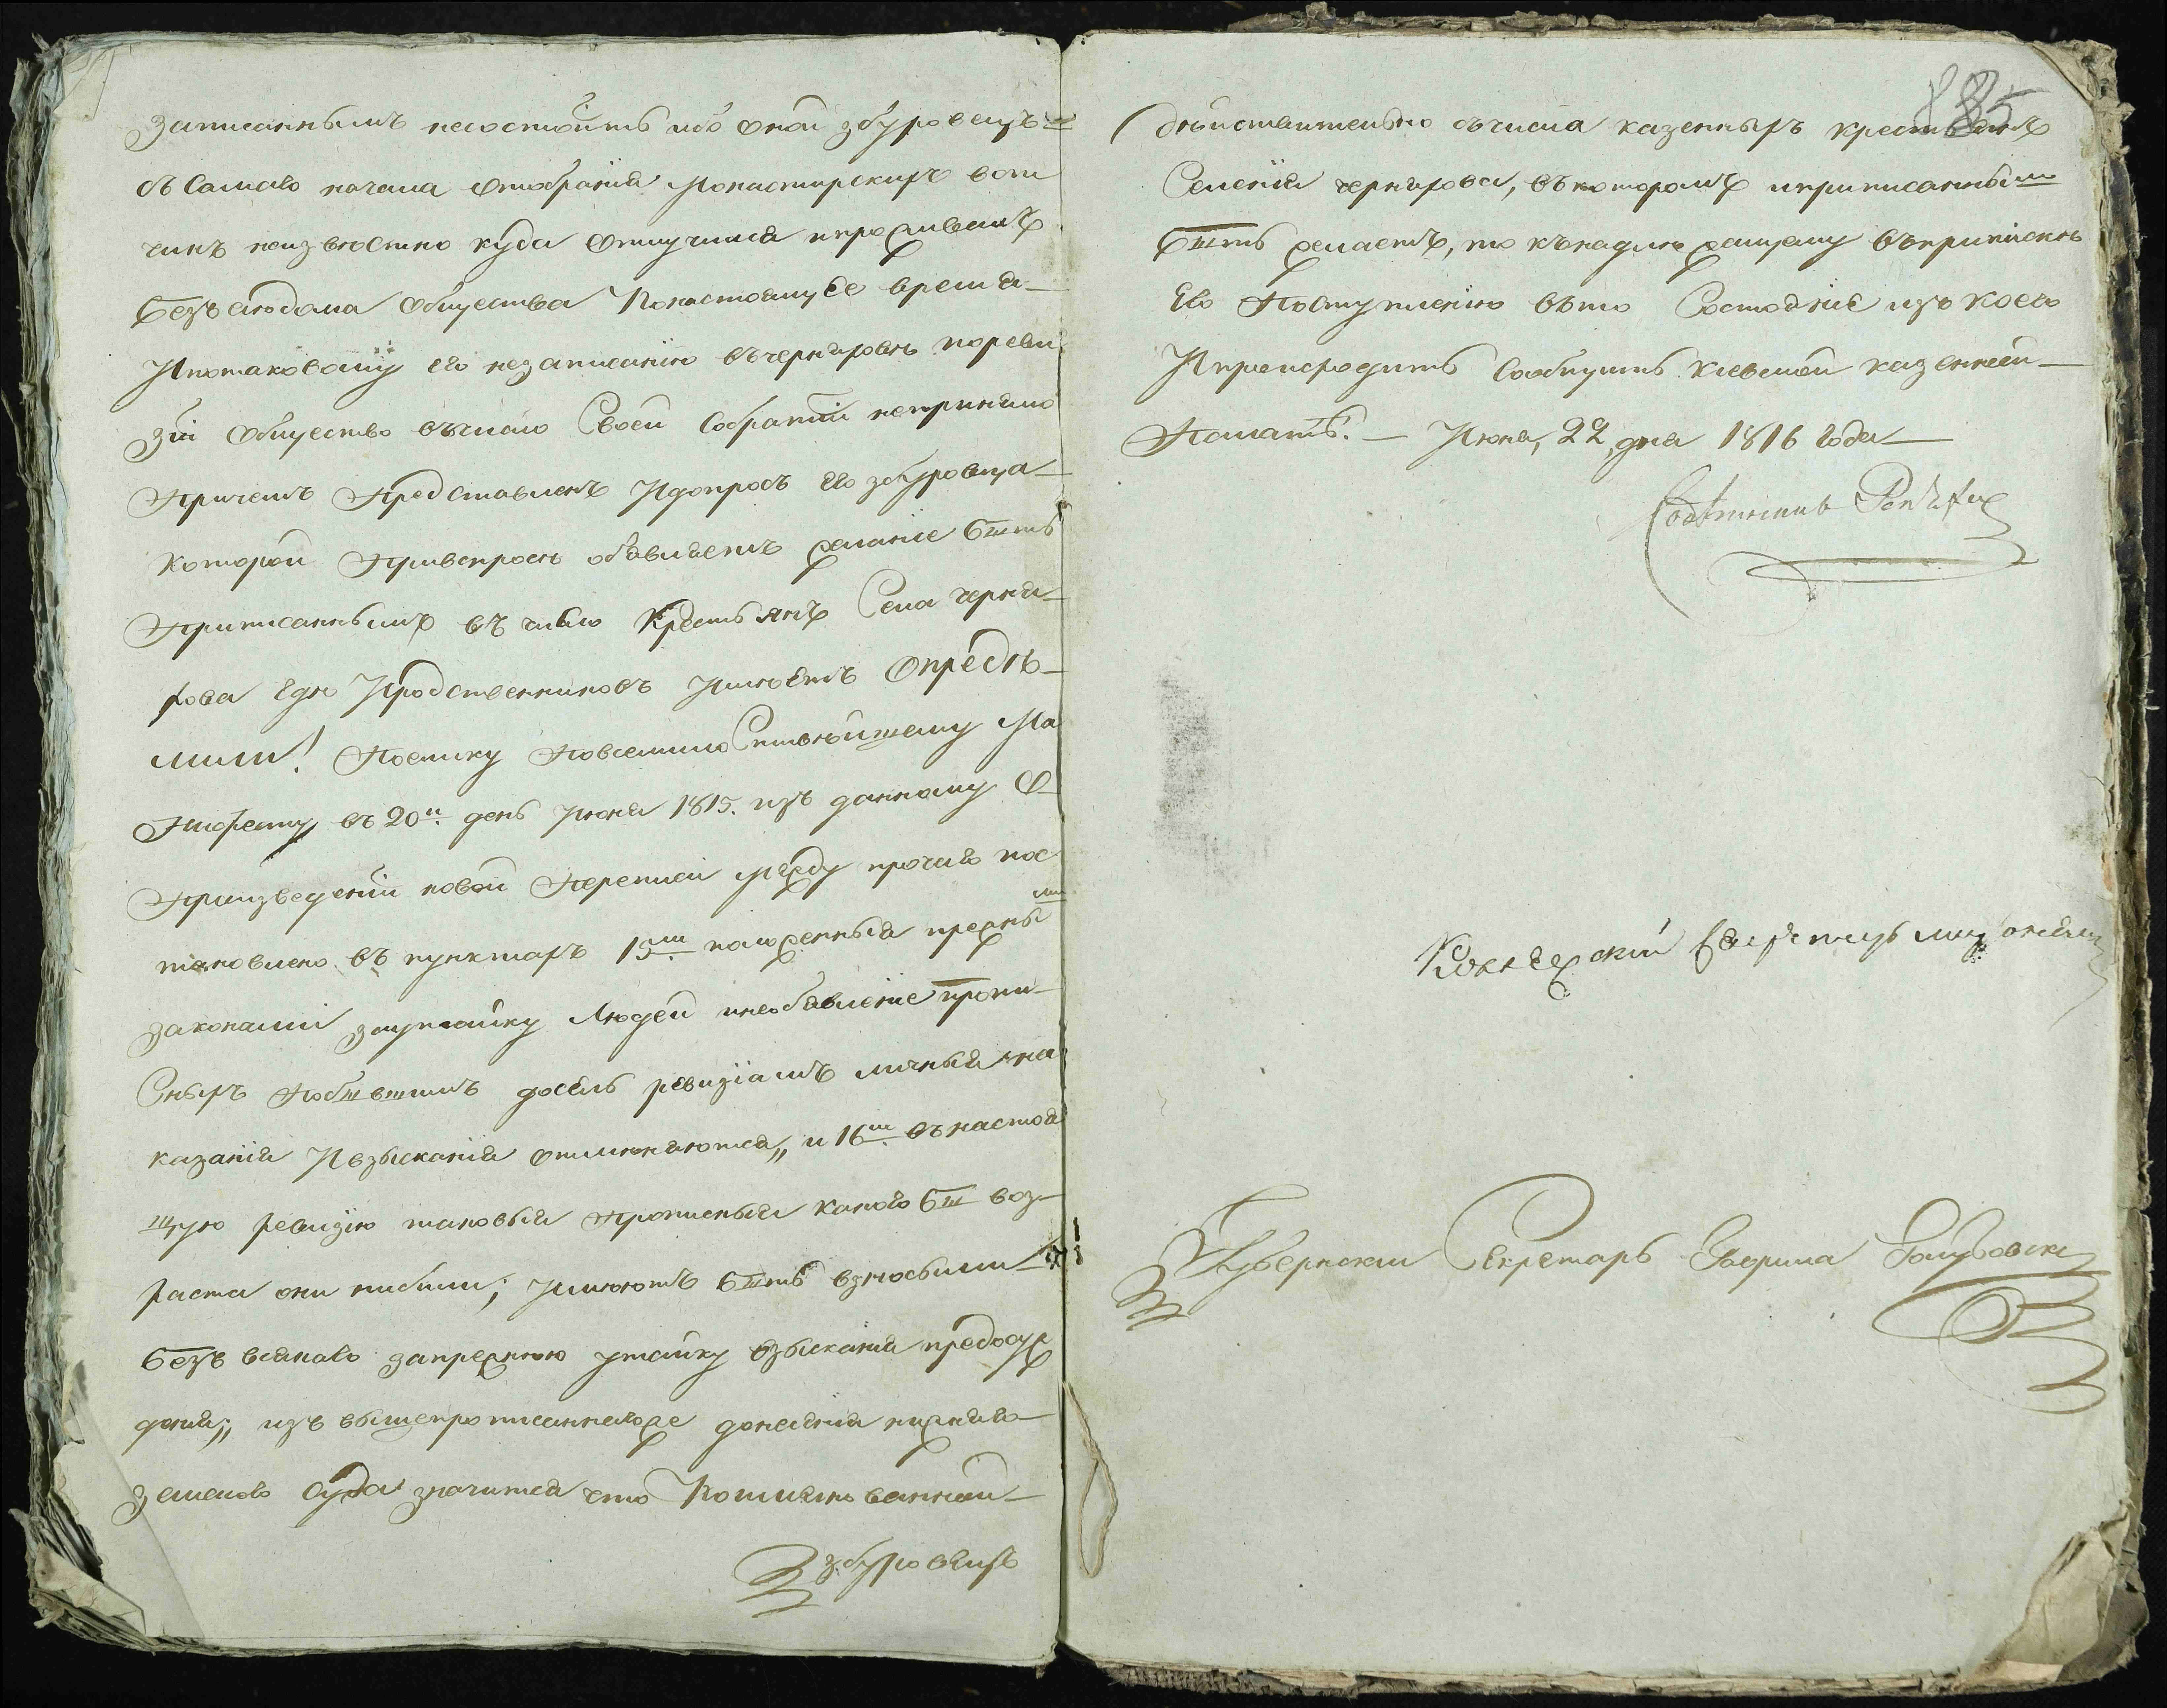 записаннымъ несостоитъ ибо оной збуровецъ
съ самаго начала отобранія монастирскихъ вот
чинъ неизвѣстно куда отлучился и проживалъ
безъ вѣдома общества Понастоящее время
И потаковому его незаписанію въ черняховѣ пореви
зіи общество въ число Своей Собратіи непринимо
Причемъ Представленъ И допросъ его збуровца
которой Привопросѣ объявляетъ желаніе быть
Приписаннымъ въ число Крестьянъ Села черня
хова гдѣ И родственниковъ Имѣетъ Опредѣ
лили! Поелику Повсемилостивѣйшему Ма
нифесту въ 20й день Июня 1815. издан­ному О
Произведеніи новой Переписи Между прочаго пос
тановлено въ пунктахъ 15м положенныя прежными
законами за утайку Людей и необъявленіе пропи
Сныхъ Побывшимъ доселѣ ревизіямъ личныя на
казанія И взысканія отмѣняются,, и 16м въ настоя
щую ревизію таковыя Прописныя какого бы воз
раста они нибыли; Имѣютъ быть взносимы
безъ всякаго запрежнюю утайку взысканія предосуж
денія;, изъ вышепрописаннагоже донесенія нижняго
земскаго Суда значится что Поимянованной
збуровецъ
185
дѣйствительно съ числа казенныхъ крестьянъ
Селенія черняхова, въ которомъ и приписаннымъ
быть желаетъ, то къ надлежащему въ припискѣ
Его Поступленію въ то Состояніе изъ коего
И происходитъ Сообщить Кіевской казенной
Палатѣ. Июня, 22 дня 1816 года
Совѣтникъ
Коллежскій Секретарь
Губернскій Секретарь Гаврила Голубовскі